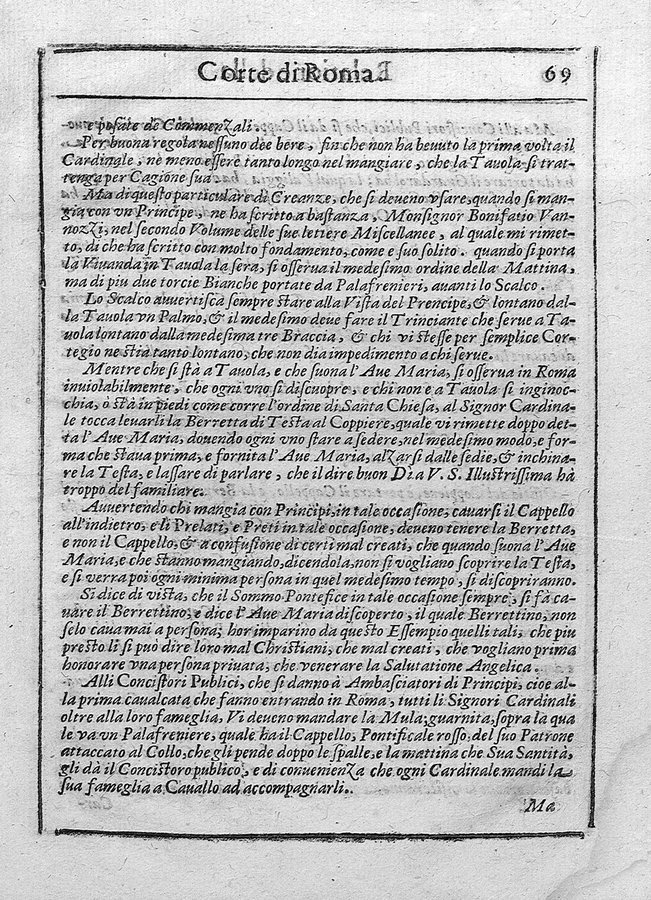 Corte di Roma. 69
posate de Commenzali.
Per buona regola nessuno dee bere, fin che non ha beuuto la prima volta il
Cardinale, ne meno essere tanto longo nel mangiare, che la Tauola si trat-
tenga per Cagione sua.
Ma di questo particulare di Creanze, che si deueno vsare, quando si man-
gia con vn Principe, ne ha scritto a bastanza, Monsignor Bonifatio Van-
nozzi, nel secondo Volume delle sue letiere Miscellanee, al quale mi rimet-
to, di che ha scritto con molto fondamento, come e suo solito. quando si porta
la Viuanda in Tauola la sera, si osserua il medesimo ordine della Mattina,
ma di piu due torcie Bianche portate da Palafrenieri, auanti lo Scalco.
Lo Scalco auuertisca sempre stare alla Vista del Prencipe, & lontano dal-
la Tauola vn Palmo, & il medesimo deue fare il Trinciante che serue a Ta-
uola lontano dalla medesima tre Braccia, & chi vi stesse per semplice Cor-
tegio ne stia tanto lontano, che non dia impedimento a chi serue.
Mentre che si stà a Tauola, e che suona l'Aue Maria, si osserua in Roma
inuiolabilmente, che ogni vno si discuopre, e chi non e a Tauola si inginoc-
chia, ò stà in piedi come corre l'ordine di Santa Chiesa, al Signor Cardina-
le tocca leuarli la Berretta di Testa al Coppiere, quale vi rimette doppo det-
ta l'Aue Maria, douendo ogni vno stare a sedere, nel medesimo modo, e for-
ma che staua prima, e fornita l'Aue Maria, alzarsi dalle sedie, & inchina-
re la Testa, e lassare di parlare, che il dire buon Di a V. S. Illustrissima hà
troppo del familiare.
Auuertendo chi mangia con Principi, in tale occasione, cauarsi il Cappello
all'indietro, e li Prelati, e Preti in tale occasione, deueno tenere la Berretta,
e non il Cappello, & a confusione di certi mal creati, che quando suona l'Aue
Maria, e che stanno mangiando, dicendola, non si vogliano scoprire la Testa,
e si verra poi ogni minima persona in quel medesimo tempo, si discopriranno.
Si dice di vista, che il Sommo Pontefice in tale occasione sempre, si fà ca-
uare il Berrettino, e dice l'Aue Maria discoperto, il quale Berrettino, non
selo caua mai a persona; hor imparino da questo Essempio quelli tali, che piu
presto li si può dire loro mal Christiani, che mal creati, che vogliano prima
honorare vna persona priuata, che venerare la Salutatione Angelica.
Alli Concistori Publici, che si danno à Ambasciatori di Principi, cioe al-
la prima caualcata che fanno entrando in Roma, tutti li Signori Cardinali
oltre alla loro fameglia, Vi deueno mandare la Mula, guarnita, sopra la qua
le va vn Palafreniere, quale ha il Cappello, Pontificale rosso, del suo Patrone
attaccato al Collo, che gli pende doppo le spalle, e la mattina che Sua Santità,
gli dà il Concistoro publico, e di conuenienza che ogni Cardinale mandi la
sua fameglia a Cauallo ad accompagnarli.
Ma